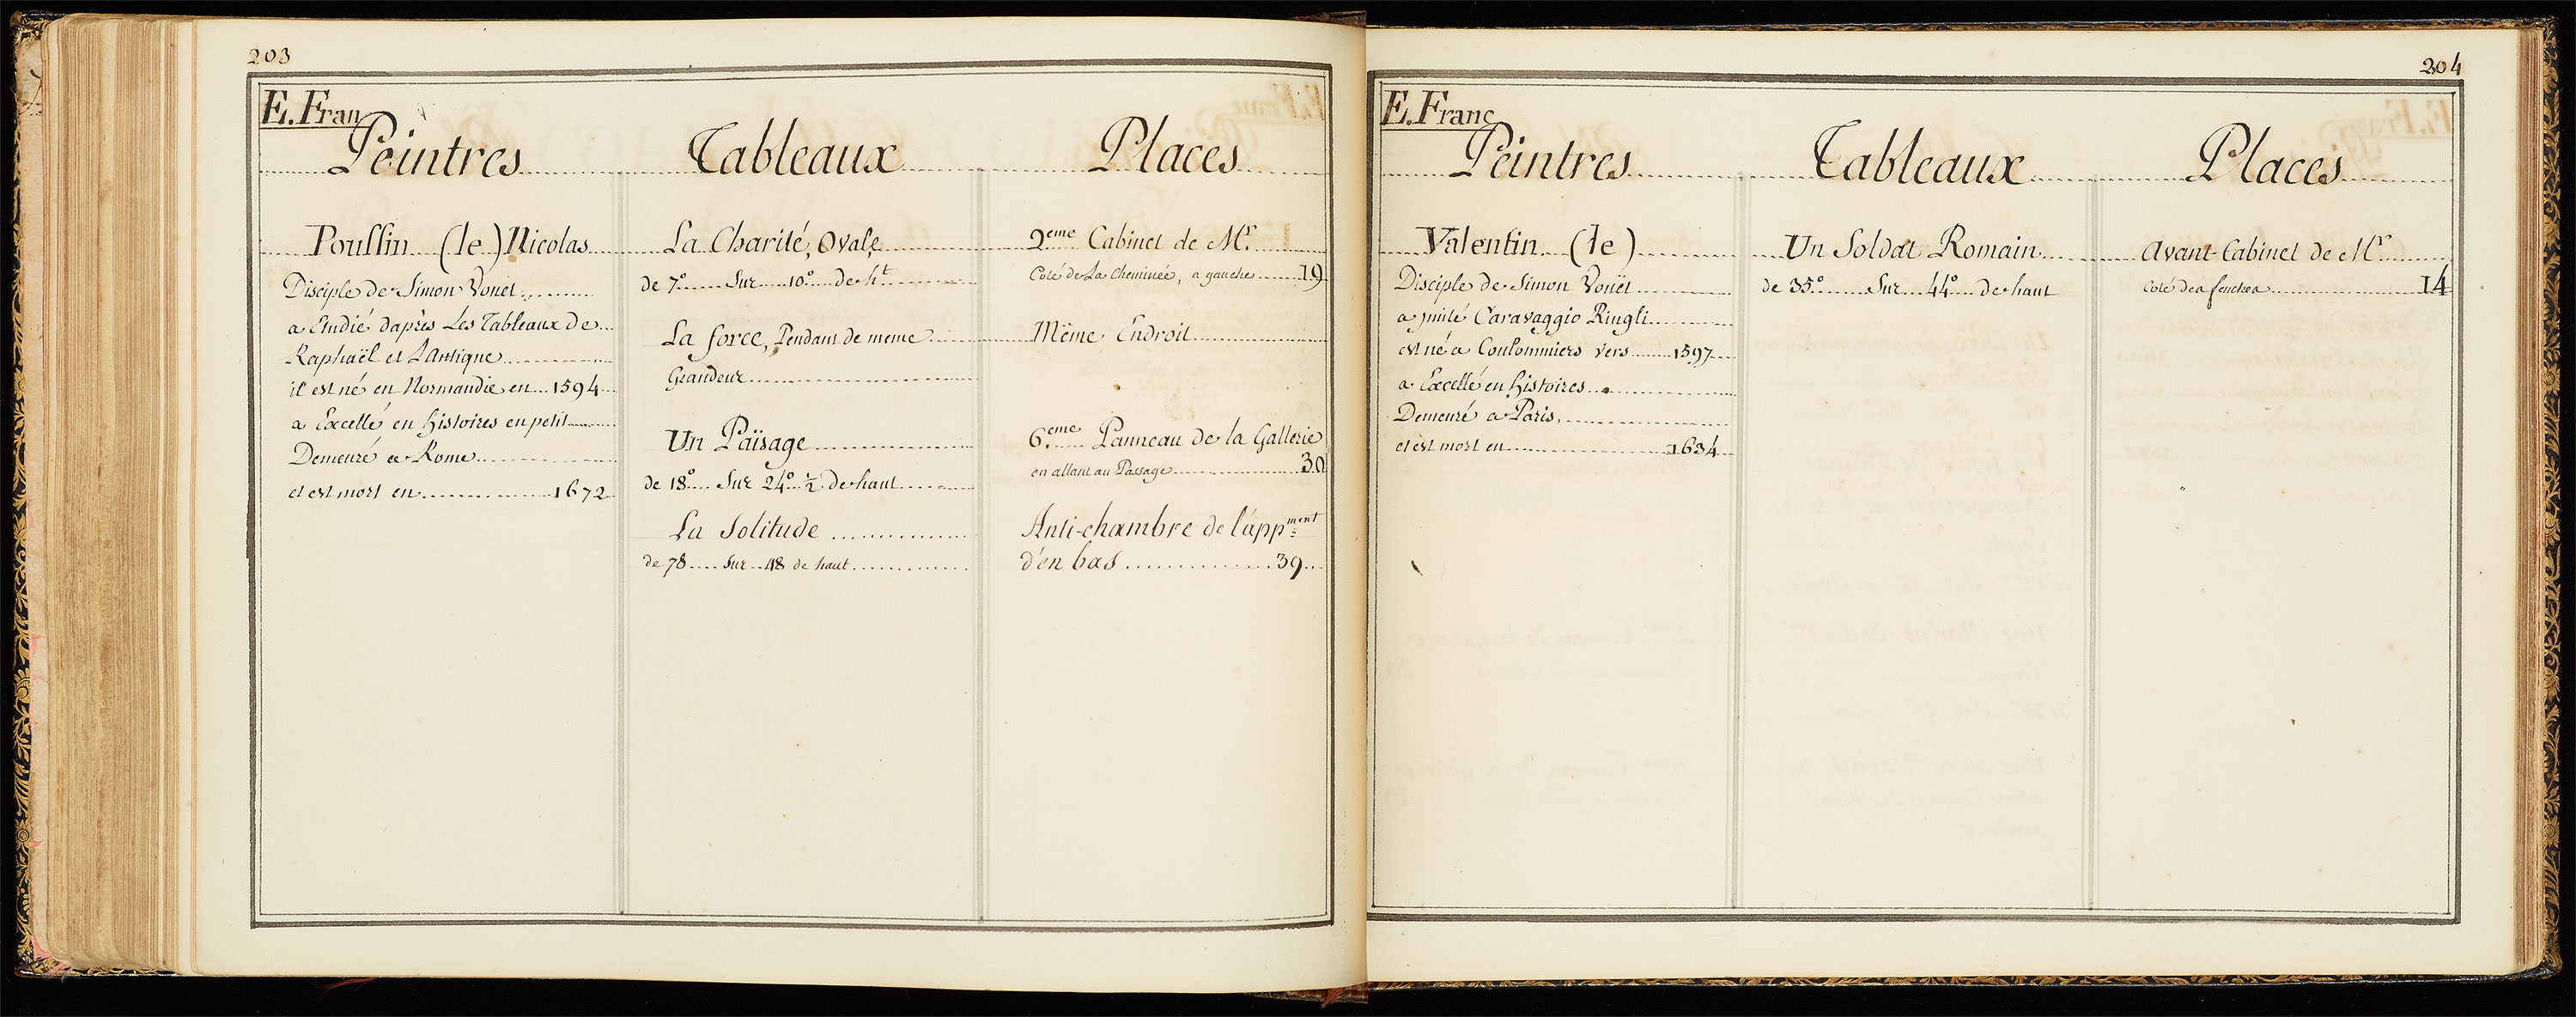 203
E. Fran
Peintres Tableaux Places
Poussin (le) Nicolas
Disciple de Simon Vouet
a Etudié daprès Les Tableaux de
Raphaël et L'Antique
il est né en Normandie en 1594
a Excellé en histoires en petit
Demeuré a Rome
et est mort en 1672
La Charité, Ovale
de 7° Sur 10° de ht
La force, Pendant de meme
Grandeur
Un Païsage
de 18° Sur 24° ½ De haut
La Solitude
de 78 Sur 48 de haut
2.eme Cabinet de Mr
Coté de La Cheminée, a gauche 19
Même Endroit
6.eme Panneau de la Gallerie
en allant au Passage 30
Anti-chambre de l'appment
d'en bas 39
204
E. Franc
Peintres Tableaux Places
Valentin (le)
Disciple de Simon Vouët
a imité Caravaggio
est né a Coulommiers vers 1597
a Excellé en histoires
Demeuré a Paris,
et est mort en 1634
Un Soldat Romain
de 35° Sur 44° De haut
Avant-Cabinet de Mr
Coté des fenetres 14